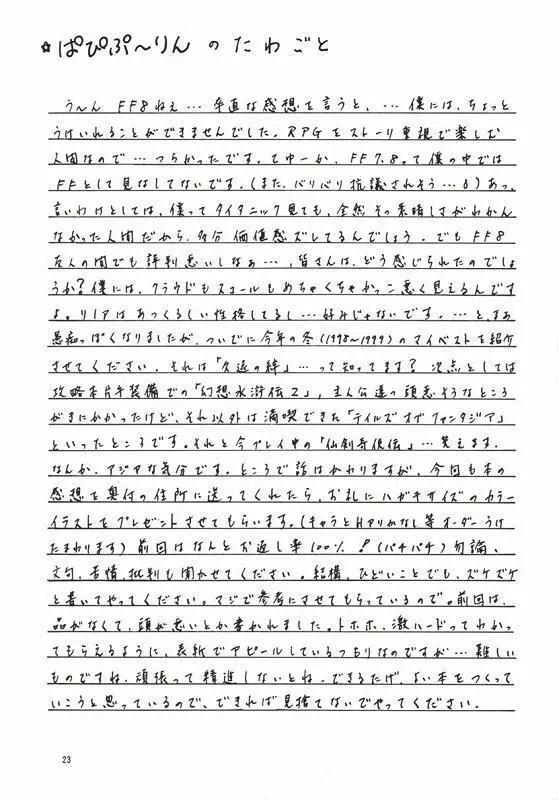 ☆ぱぴぷ～りんのたわごと
う～ん FF8ねぇ…率直な感想を言うと、…僕には、ちょっと
うけいれることができませんでした。RPGをストーリ重視で楽しむ
人間なので…つらかったです。てゆーか、FF7.8って僕の中では
FFとして見なしてないです。(また、バリバリ抗議されそう…)あっ、
言いわけとしては、僕ってタイタニック見ても、全然その素晴しさがわかん
なかった人間だから、多分価値感ズレてるんでしょう。でもFF8
友人の間でも評判悪いしなぁ…、皆さんは、どう感じられたのでしょ
うか?僕には、クラウドもスコールもめちゃくちゃかっこ悪く見えるんです
よ。リノアはあつくるしい性格してるし…好みじゃないです。…と、まぁ
愚痴っぽくなりましたが、ついでに今年の冬(1998~1999)のマイベストを紹介
させてください。それは「久遠の絆」…って知ってます?次点としては
攻略本片手装備での「幻想水滸伝2」、主人公達の頭悪そうなところ
がきにかかったけど、それ以外は満喫できた「テイルズオブファンタジア」
といったところです。それと今プレイ中の「仙剣奇侠伝」…笑えます。
なんか、アジアな気分です。ところで話はかわりますが、今回も本の
感想を奥付の住所に送ってくれたら、お礼にハガキサイズのカラー
イラストをプレゼントさせてもらいます。(キャラとHアリかなし等オーダーうけ
たまわります)前回はなんとお返し率100%!(パチパチ)勿論、
文句、苦情、批判も聞かせてください。結構、ひどいことでも、ズケズケ
と書いてやってください。マジで参考にさせてもらっているので。前回は、
品がなくて、頭が悪いとか書かれました。トホホ、激ハードってわかっ
てもらえるように、表紙でアピールしているつもりなのですが…難しい
ものですね、頑張って精進しないとね。できるだけ、よい本をつくって
いこうと思っているので、できれば見捨てないでやってください。
23